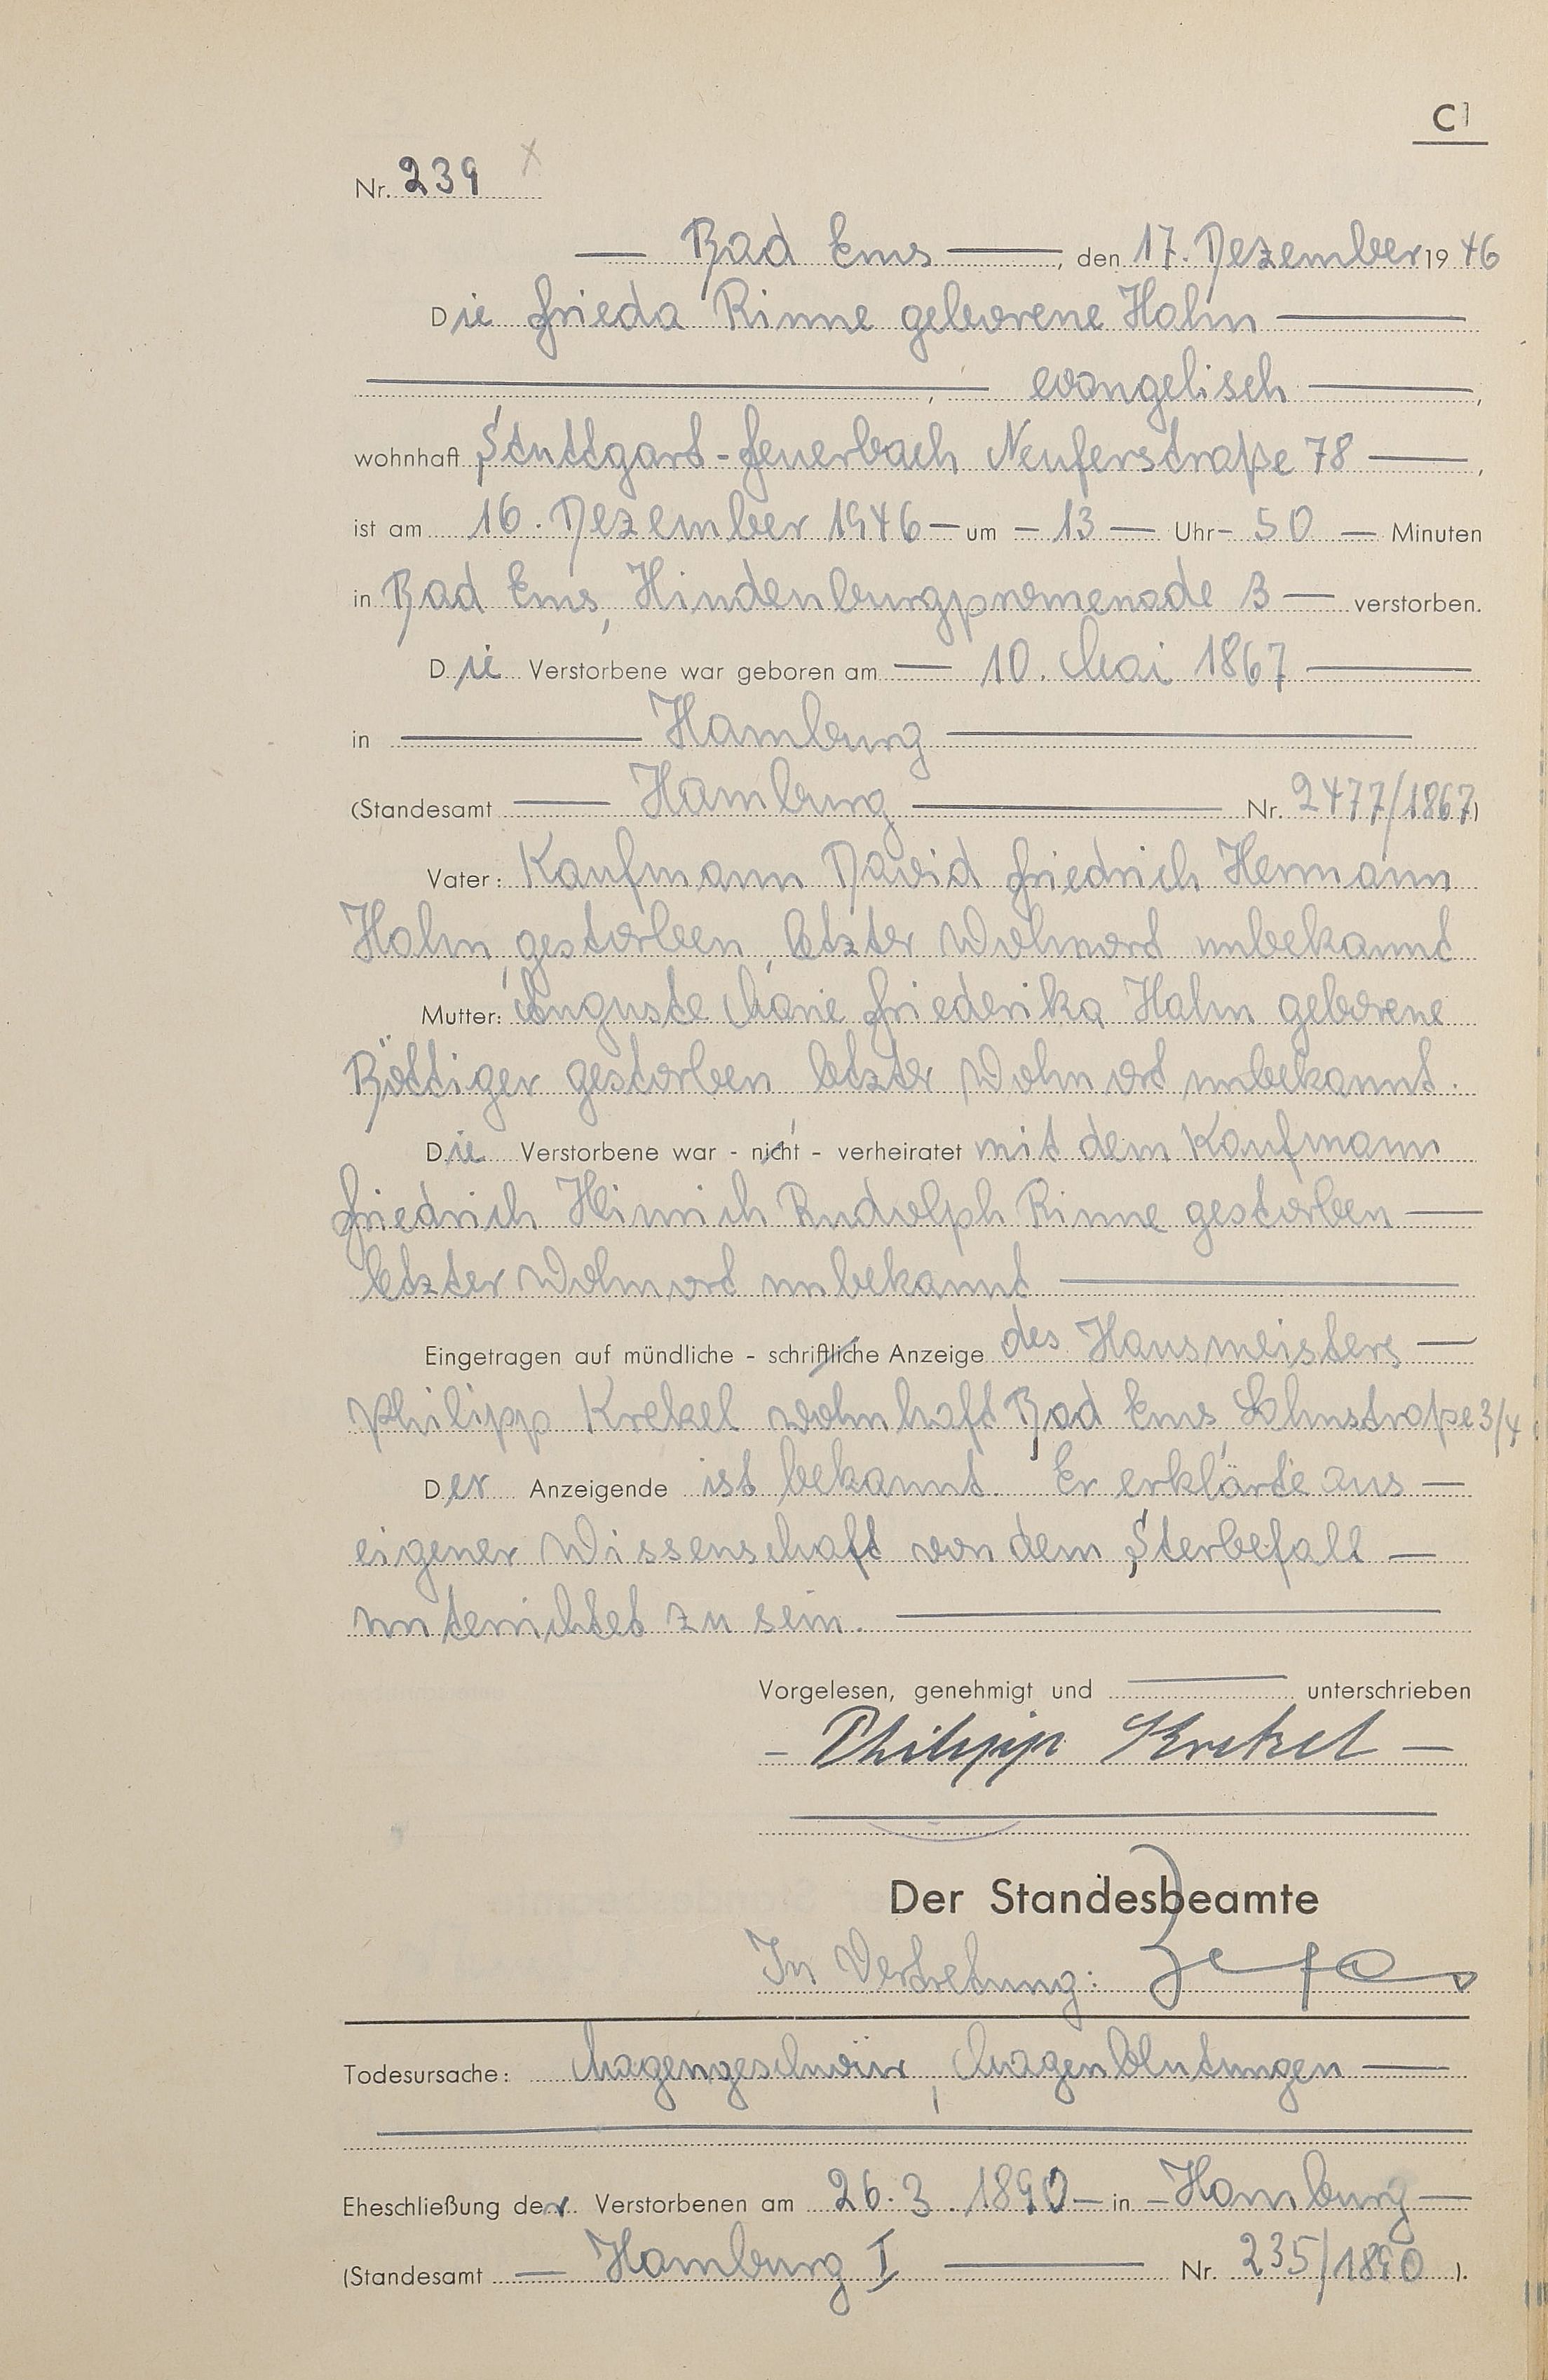 C
Nr. 239
Bad Ems, den 17. Dezember 1946
Die Frieda Rinne geborene Hahn
, evangelisch,
wohnhaft Stuttgart-Feuerbach Neuferstraße 78,
ist am 16. Dezember 1946 um 13 Uhr 50 Minuten
in Bad Ems, Hindenburgpromenade 3 verstorben.
Die Verstorbene war geboren am 10. Mai 1867
in Hamburg
(Standesamt Hamburg Nr. 2477/1867)
Vater: Kaufmann David Friedrich Hermann
Hahn, gestorben, letzter Wohnort unbekannt
Mutter: Auguste Marie Friederika Hahn geborene
Böttiger gestorben letzter Wohnort unbekannt.
Die Verstorbene war - nicht - verheiratet mit dem Kaufmann
Friedrich Hinrich Rudolph Rinne gestorben
letzter Wohnort unbekannt
Eingetragen auf mündliche - schriftliche Anzeige des Hausmeisters
Philipp Krekel wohnhaft Bad Ems, Lahnstraße 3/4
Der Anzeigende ist bekannt. Er erklärte aus
eigener Wissenschaft von dem Sterbefall
unterrichtet zu sein.
Vorgelesen, genehmigt und unterschrieben
Philipp Krekel
Der Standesbeamte
In Vertretung:
Todesursache: Magengeschwür, Magenblutungen
Eheschließung der Verstorbenen am 26.3.1890 in Hamburg
(Standesamt Hamburg I Nr. 235/1890).